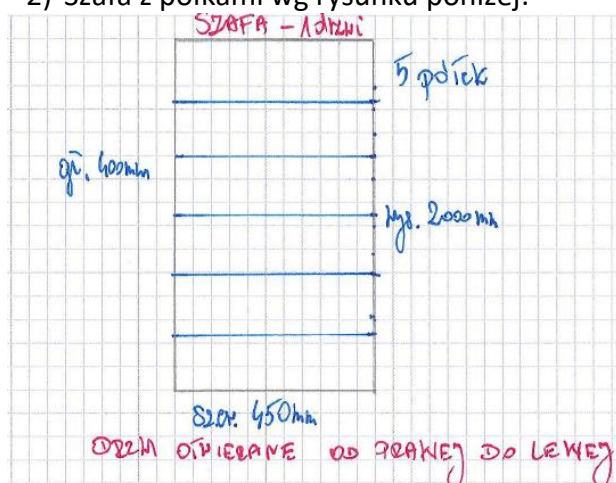 2) Szafa z półkami wg rysunku poniżej:
SZAFA - 1 drzwi
5 półek
gł. 400mm
wys. 2000mm
szer. 450mm
DRZWI OTWIERANE OD PRAWEJ DO LEWEJ